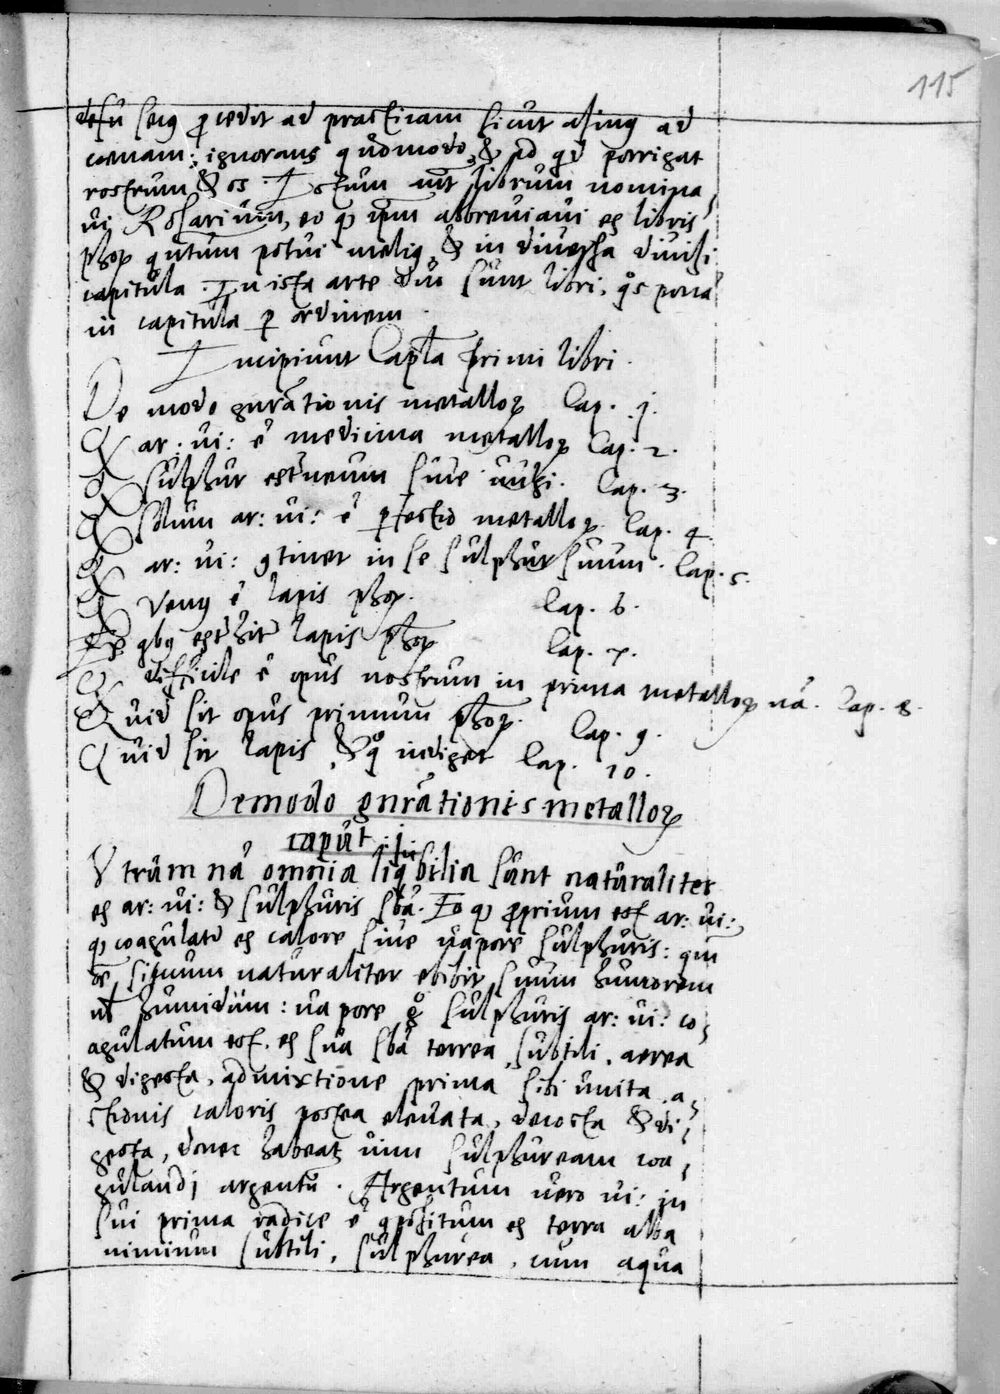 115
desū secꝰ ꝓcedit ad practicam sicut asinꝰ ad
coenam: ignorans quōmodo, & ad qd porrigat
rostrum & os. Istum aūt librum nomina-
ui Rosarium, eo ꝙ ipm abbreuiaui ex libris
phoꝝ qntum potui meliꝰ, & in diuersa diuisi
capitula. In ista arte duo sunt libri, qͦs ponā
in capitula ꝑ ordinem.
Incipiunt Capla primi libri.
De modo gnrātionis metalloꝝ Cap. j.
Q ar: ui: ē medicina metalloꝝ Cap. 2.
Q sulphur extrneum siue Cap. 3.
Q solum ar: ui: ē ꝑfectio metalloꝝ Cap. 4
Q ar: ui: ꝯtinet in se sulphur suum. Cap. 5.
Q Venꝰ ē lapis phoꝝ. Cap. 6.
Ex qbꝰ extrhit lapis phoꝝ Cap. 7.
Q difficile ē opus nostrum in prima metalloꝝ nā. Cap. 8.
Quid sit opus primum phoꝝ. Cap. 9.
Quid sit lapis, & qͦ indiget Cap. 10.
De modo gnrātionis metalloꝝ
caput j.
Utrum nā omnia liqbilia sunt naturaliter
ex ar: ui: & sulphuris sbā. Eo ꝙ ꝓprium est ar: ui:,
ꝙ coagulatr ex calore siue uapore sulphuris: qm
oē siccum naturaliter ebibit suum humorem
ul humidum: uapore gͦ sulphuris ar: ui: co-
agulatum est. ex sua sbā terrea, subtili, aerea
& digesta, admixtione prima sibi unita, a-
ctionis caloris postea eleuata, decocta & di-
gesta, donec habeat uim sulphuream coa-
gulandi argentū. Argentum uero ui: in
sui prima radice ē ꝯpositum ex terra alba
nimium subtili, sulphurea, cum aqua